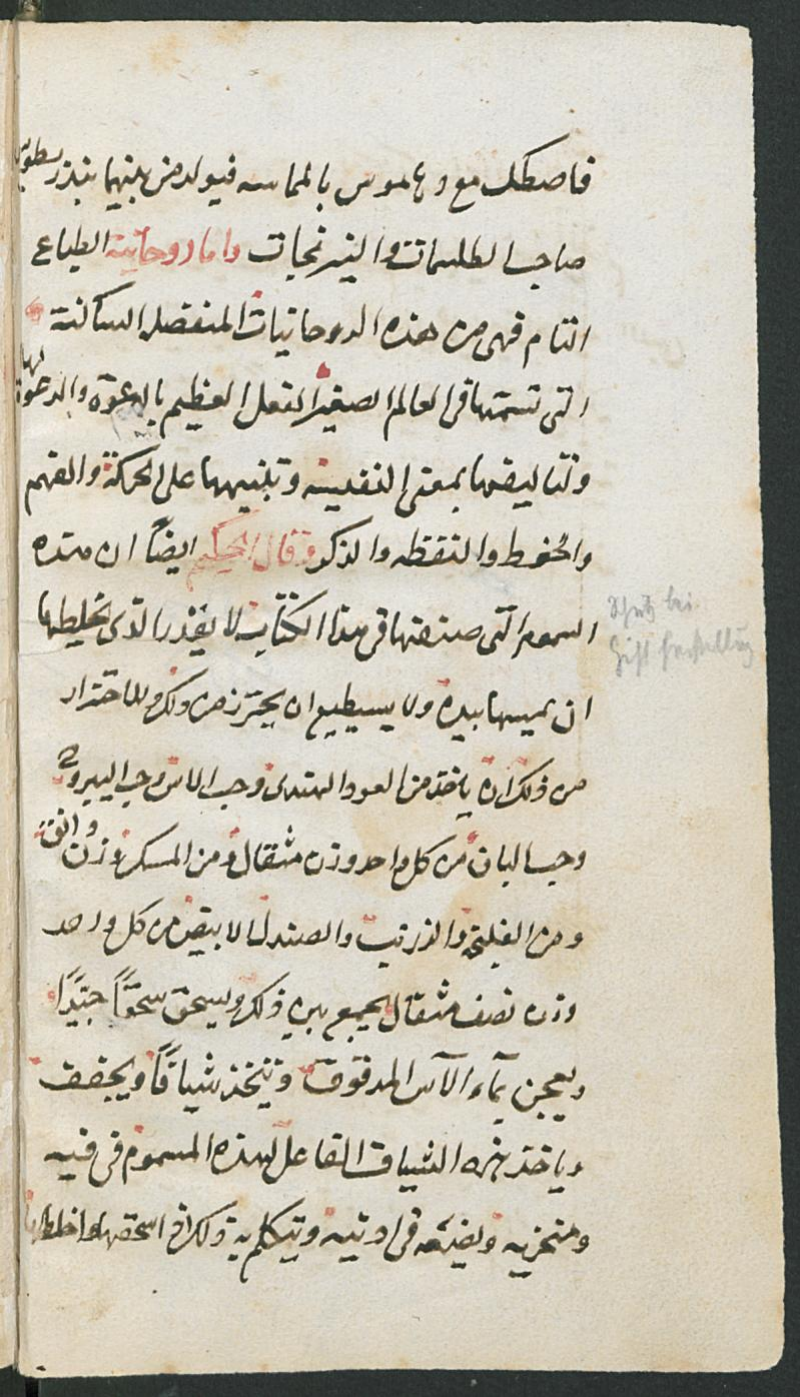 فاصطكك مع وغاموس بالمماسه فيولد من بينهما بنذر
صاحب الطلسمات والنيرنجات واما روحانية الطباع
التام فهى من هذه الروحانيات المنفصله الساكنة
التى تستمتها فى العالم الصغير الفعل العظيم بالدعوة والدعوة لها
وتتاليفها بمعنى النفسيه وتنبيهها على الحركة والفهم
والحفظ والتقظه والذكر وقال الحكيم ايضاً ان هذه
السموم التى صنعتها فى هذا الكتاب لا يقدر الذى يخليطها
ان يمسها بيده ولا يسيطيع ان يحترز من ذلك والاحتراز
من ذلك انه ياخذ من العود الهندى وحب الاس وحب اليبروح
وحب البان من كل واحد وزن مثقال ومن المسك وزن دانق
ومن الفلنجة والزرنب والصندل الابيض من كل واحد
وزن نصف مثقال يجمع بهره ذلك ويسحق سحقاً جيّدًا
ويعجن بمآء الآس المدقوق وتتخذ شيافًا ويجفف
وياخذ بهذه الشياف الفاعل لهذه السموم فى فيه
ومنخريه ويضعه فى اذنيه ويتكلم به ذلك اذ اسحقها واخلطها
Schutz bei
Gift Herstellung